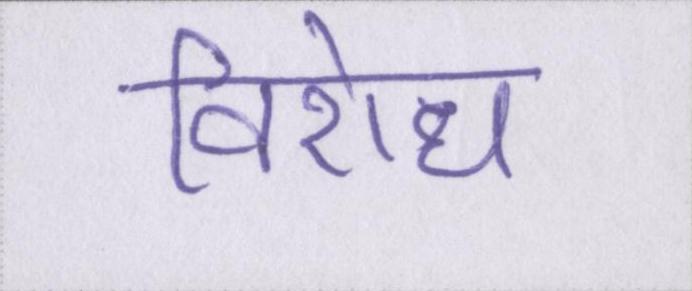 विरोध